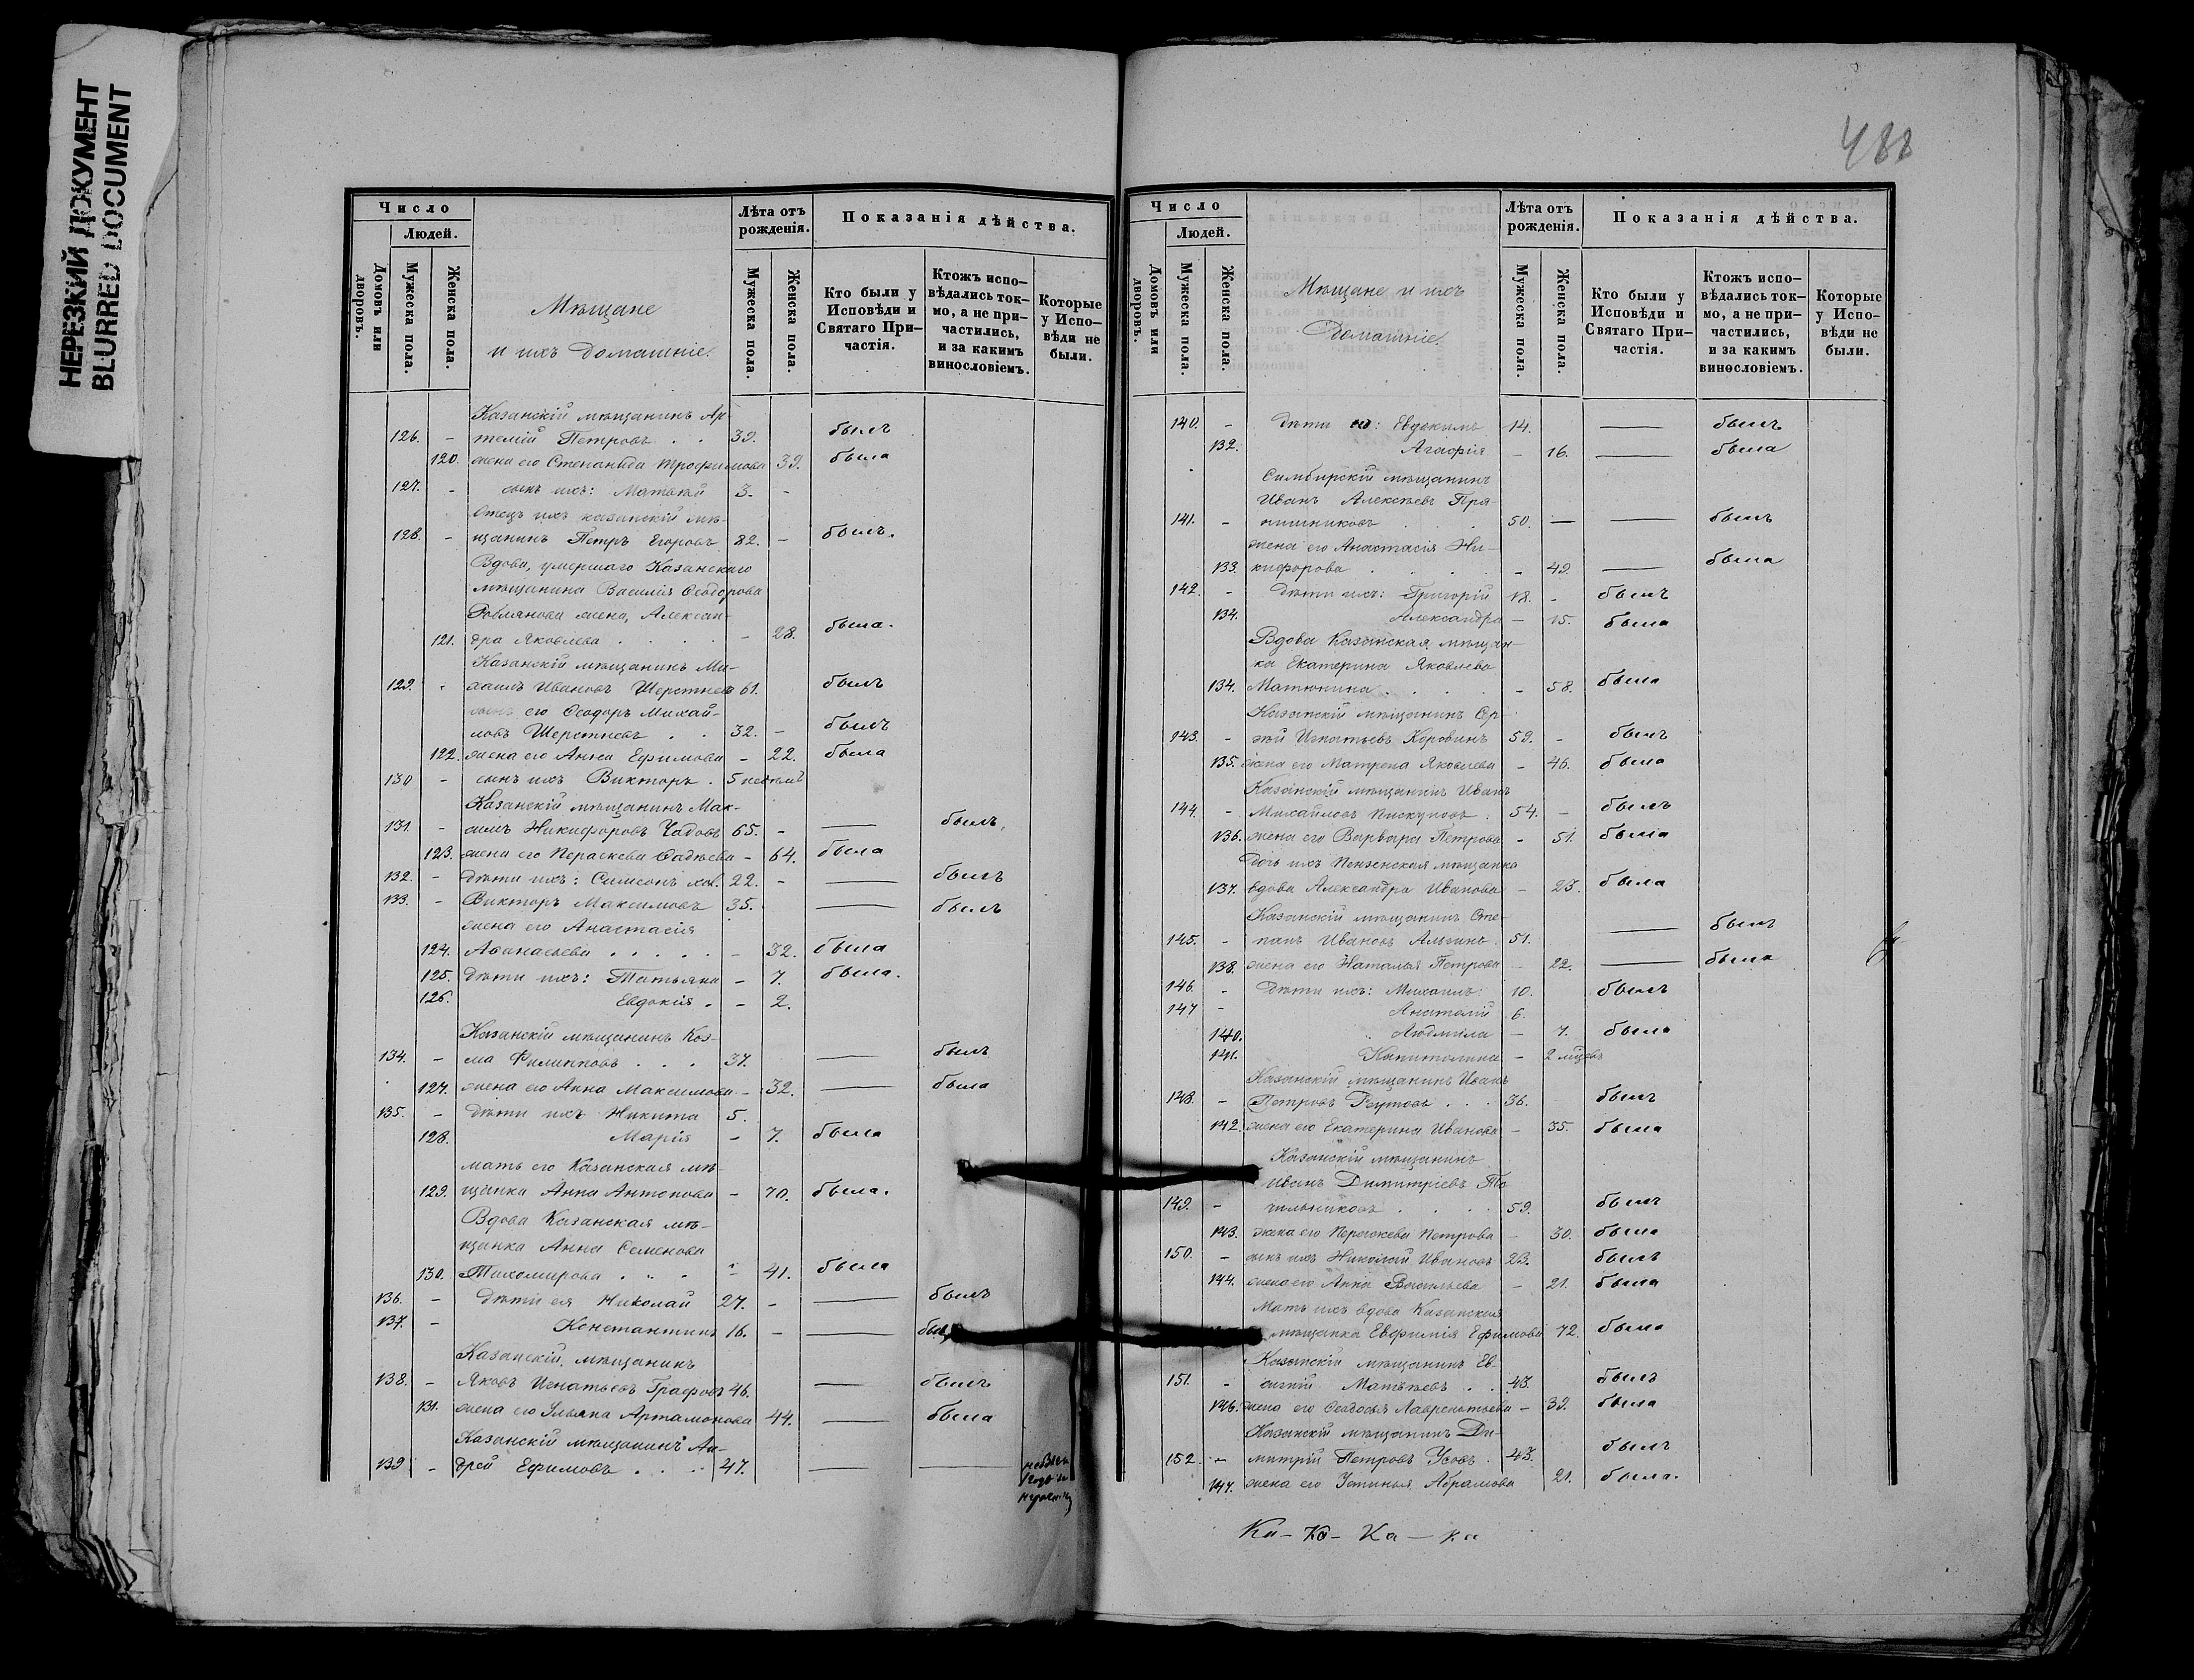 НЕРЕЗКИЙ ДОКУМЕНТ
BLURRED DOCUMENT
Число
Людей.
Домовъ или дворовъ.
Мужеска пола.
Женска пола.
Мѣщане
и ихъ домашніе.
Лѣта отъ рожденія.
Мужеска пола.
Женска пола.
Показанія дѣйства.
Кто были у Исповѣди и Святаго Причастія.
Ктожъ исповѣдались токмо, а не причастились, и за какимъ винословіемъ.
Которые у Исповѣди не были.
Казанскій мѣщанинъ Ар
126. - темій Петровъ . . 39. былъ
120. жена его Степанида Трофимова 39. была
127. - сынъ ихъ: Матвѣй 3. -
Отецъ ихъ казанскій мѣ-
128. - щанинъ Петръ Егоровъ 82. - былъ.
Вдова, умершаго Казанскаго
мѣщанина Василія Ѳеодорова
жена, Алексан-
121. дра Яковлева . . . . - 28. была.
Казанскій мѣщанинъ Ми-
129. - хаилъ Ивановъ Шерстневъ 61. былъ
сынъ его Ѳеодоръ Михай-
ловъ Шерстневъ . . 32. - былъ
122. жена его Анна Ефимова - 22. была
130 - сынъ ихъ Викторъ . 5 недѣль
Казанскій мѣщанинъ Мак-
131. - симъ Никифоровъ Чадовъ 65. - — былъ.
123. жена его Параскева Фадѣева - 64. была
132. - дѣти ихъ: Симеонъ хол. 22. - — былъ
133. - Викторъ Максимовъ 35. — былъ
жена его Анастасія
124. Аѳанасьева . . . . . - 32. была
125. дѣти ихъ: Татьяна - 7. была.
126. Евдокія . - 2.
Казанскій мѣщанинъ Коз-
134. - ма Филипповъ . . . 37. — былъ
127. жена его Анна Максимова - 32. — была
135. - дѣти ихъ Никита 5.
128. Марія - 7. была
мать его Казанская мѣ-
129. щанка Анна Антонова - 70. была.
Вдова Казанская мѣ-
щанка Анна Семенова
130. Тихомирова . . . - 41. была
136. - дѣти ея Николай 27. - — былъ
137. - Константинъ 16. - — былъ
Казанскій мѣщанинъ
138. - Яковъ Игнатьевъ Графовъ 46. — былъ
131. жена его Ульяна Артамонова 44. — была
Казанскій мѣщанинъ Ан-
139 - дрей Ефимовъ . . . 47. — —
488
Число
Людей.
Домовъ или дворовъ.
Мужеска пола.
Женска пола.
Мѣщане и ихъ
домашніе.
Лѣта отъ рожденія.
Мужеска пола.
Женска пола.
Показанія дѣйства.
Кто были у Исповѣди и Святаго Причастія.
Ктожъ исповѣдались токмо, а не причастились, и за какимъ винословіемъ.
Которые у Исповѣди не были.
140. - дѣти его: Евдокимъ 14. — былъ
132. Агафія - 16. — была
Симбирскій мѣщанинъ
Иванъ Алексѣевъ Пря-
141. - нишниковъ . . . 50. — — былъ
жена его Анастасія Ни-
133. кифорова . . . . - 49. — была
142. - дѣти ихъ: Григорій 18. - былъ
134. Александра - 15. была
Вдова Казанская мѣщан-
ка Екатерина Яковлева
134. Матюнина . . . . - 58. была
Казанскій мѣщанинъ Сер
143. - гѣй Игнатьевъ Коровинъ 59. - былъ
135. жена его Матрена Яковлева - 46. была
Казанскій мѣщанинъ Иванъ
144. - Михайловъ Пискуновъ . 54. - былъ
136. жена его Варвара Петрова - 51. была
дочь ихъ Пензенская мѣщанка
137. вдова Александра Иванова - 23. была
Казанскій мѣщанинъ Сте-
145. - панъ Ивановъ Альгинъ . 51. — былъ
138. жена его Наталья Петрова - 22. — была
146. - дѣти ихъ: Михаилъ 10. былъ
147 - Анатолій 6.
140. Людмила - 7. была
141. Капитолина - 2 мѣсяц.
Казанскій мѣщанинъ Иванъ
148. - Петровъ Реутовъ . . . 36. былъ
142. жена его Екатерина Иванова - 35. была
Казанскій мѣщанинъ
Иванъ Димитріевъ То
149. - чильниковъ . . . . 59. былъ
143. жена его Параскева Петрова - 30. была
150. - сынъ ихъ Николай Ивановъ 23. былъ
144. жена его Анна Васильева - 21. была
Мать ихъ вдова Казанская
мѣщанка Евфимія Ефимова 72. была
Казанскій мѣщанинъ Ев-
151. - геній Матвѣевъ . . 43. былъ
146. жена его Ѳеодосья Лаврентьева - 39. была
Казанскій мѣщанинъ Ди-
152. - митрій Петровъ Усовъ . 43. былъ
147. жена его Устинья Абрамова 21. была.
Ка - Ка - Ка - ка